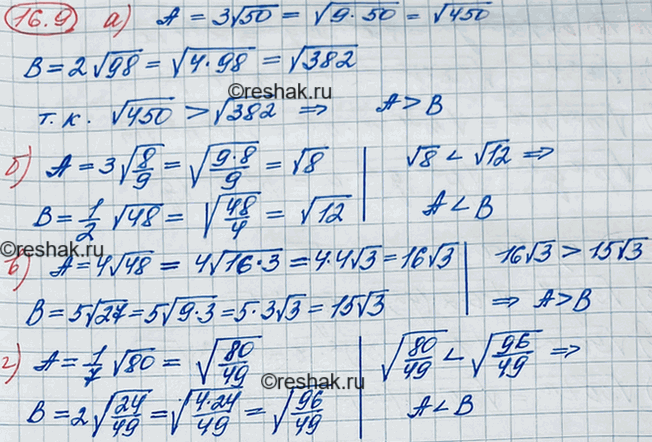 16.9 а) A = 3√50 = √(9·50) = √450
B = 2√98 = √(4·98) = √382
©reshak.ru
т.к. √450 > √382 ⇒ A > B
б) A = 3√(8/9) = √((9·8)/9) = √8 | √8 < √12 ⇒
B = 1/2 √48 = √(48/4) = √12 | A < B
©reshak.ru
в) A = 4√48 = 4√(16·3) = 4·4√3 = 16√3 | 16√3 > 15√3
B = 5√27 = 5√(9·3) = 5·3√3 = 15√3 | ⇒ A > B
г) A = 1/7 √80 = √(80/49) | √(80/49) < √(96/49) ⇒
©reshak.ru
B = 2√(24/49) = √((4·24)/49) = √(96/49) | A < B